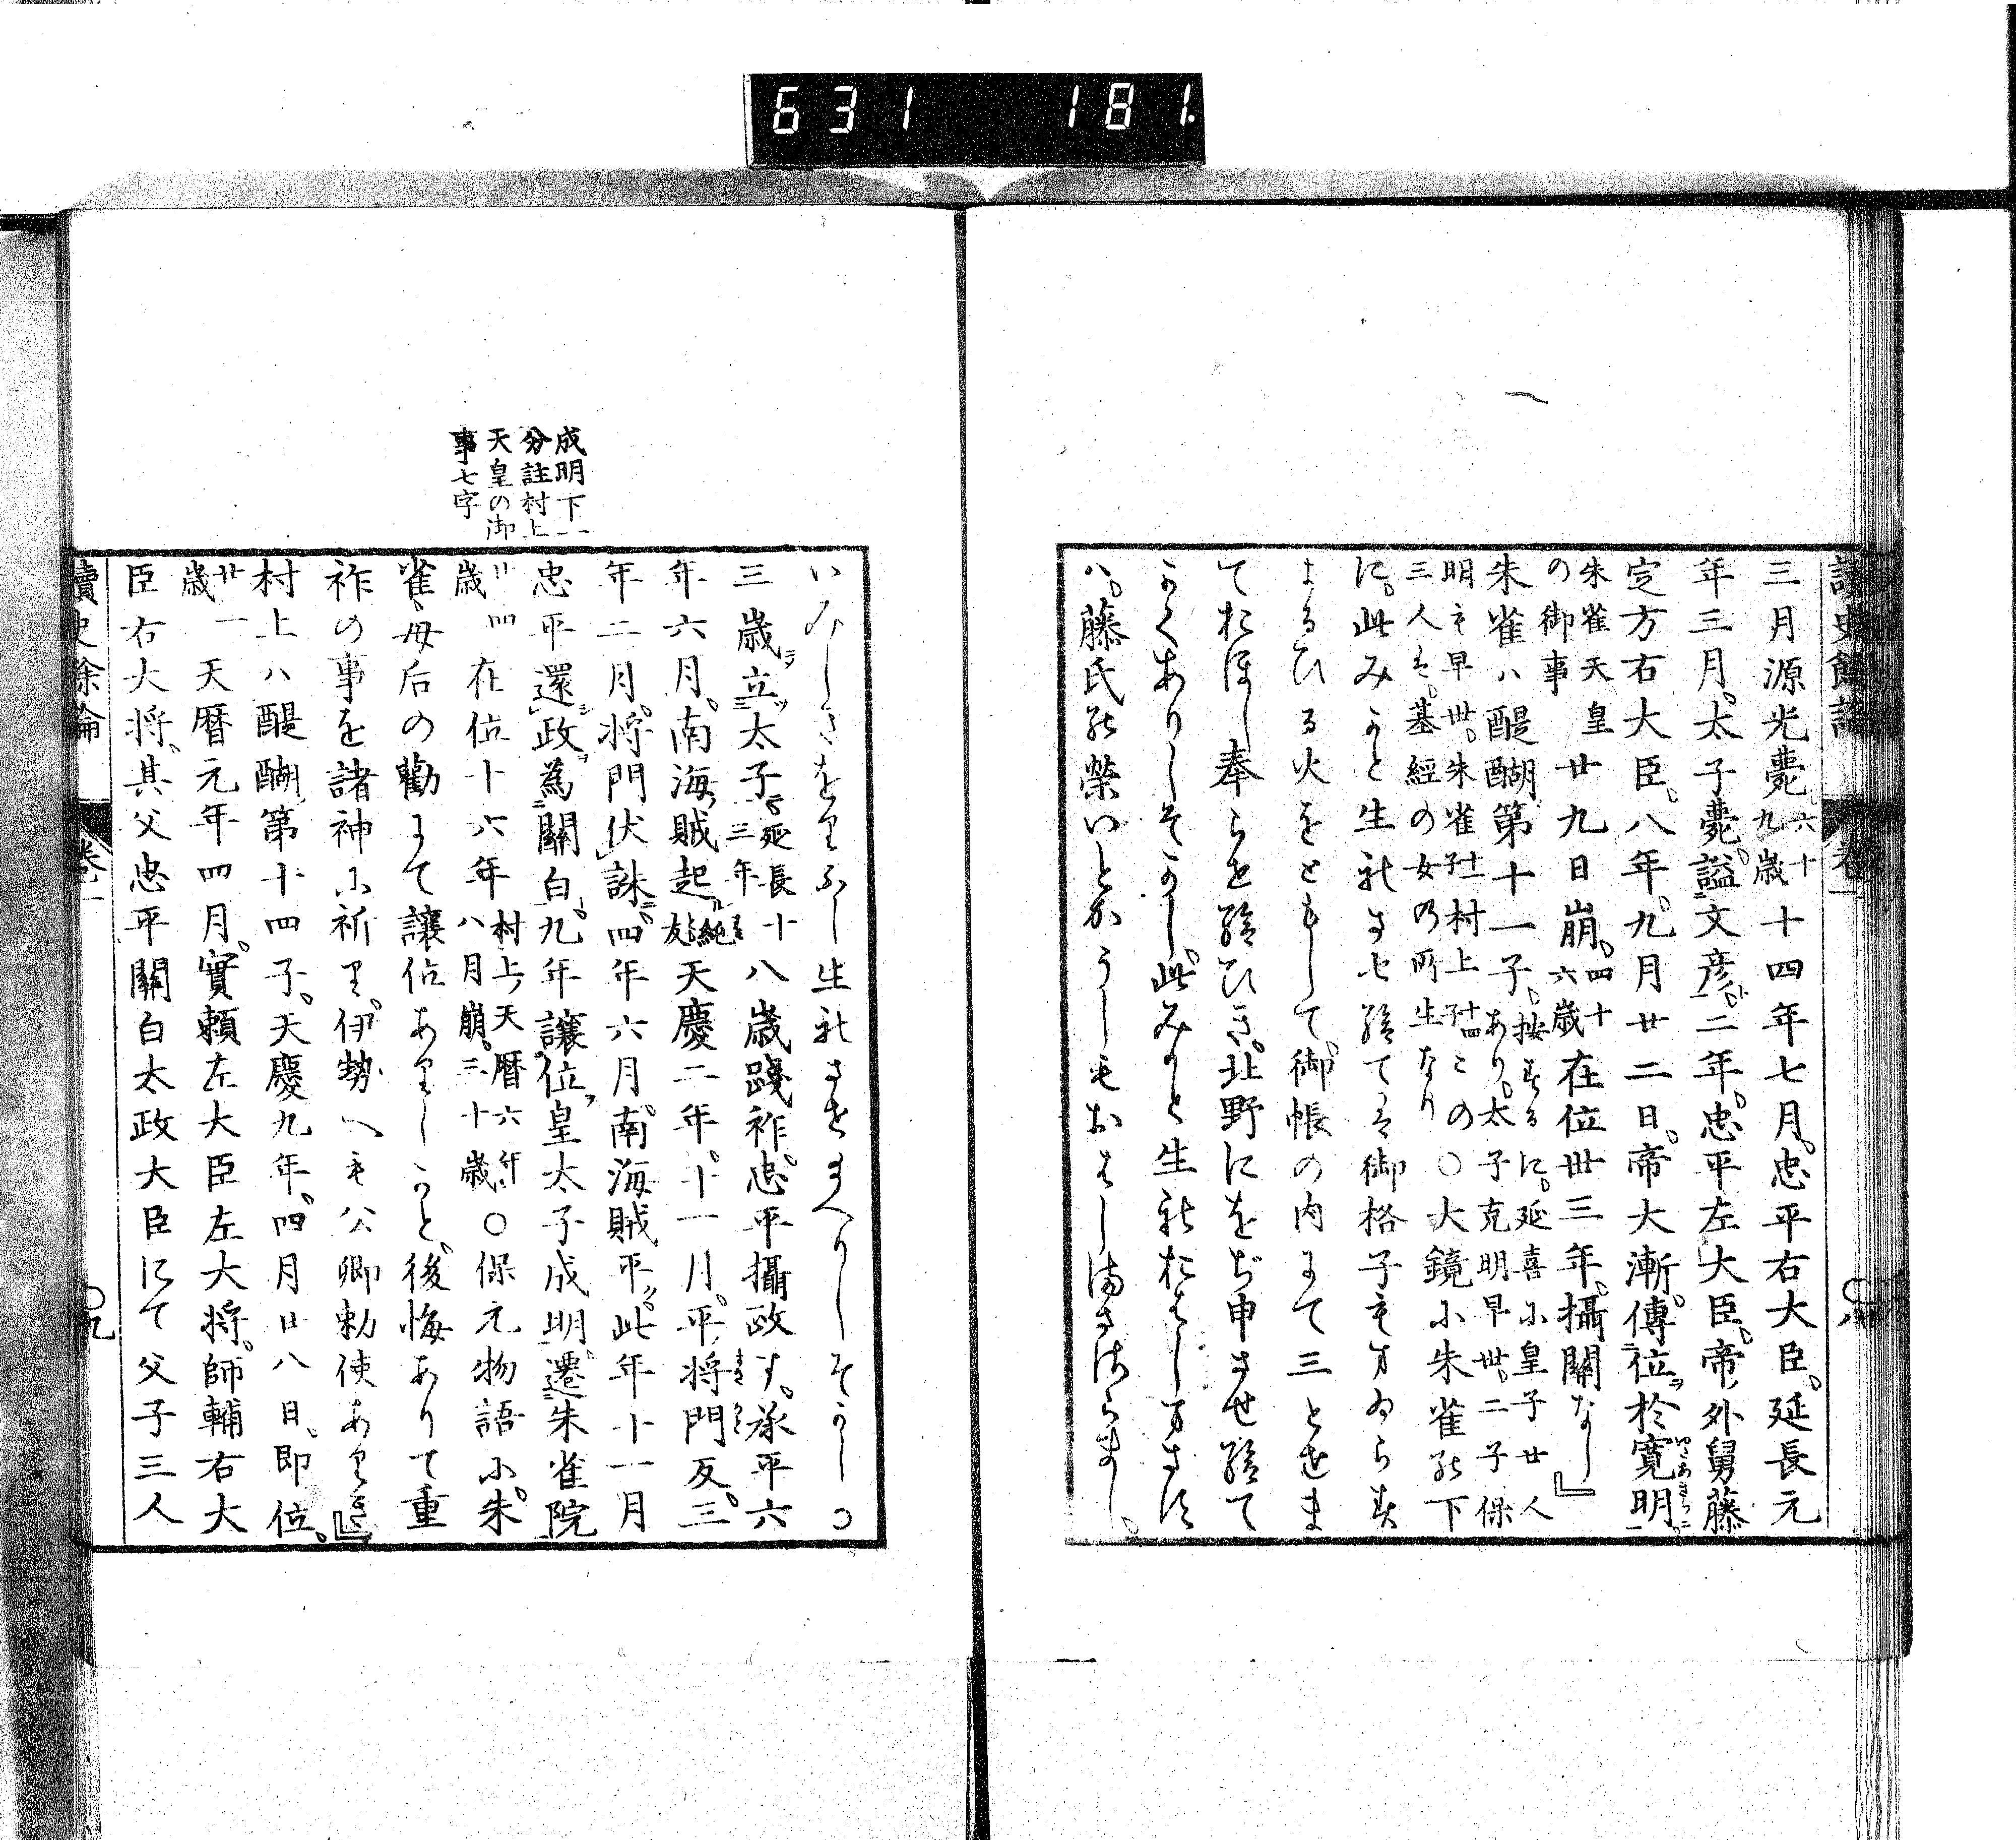 631 181.
讀史餘論 卷一 〇八
三月源光薨六十九歳十四年七月。忠平右大臣。延長元
年三月。太子薨。謚文彦。二年。忠平左大臣。帝外舅藤
定方右大臣。八年。九月廿二日。帝大漸。傳位於寛明。
朱雀天皇の御事廿九日崩。四十六歳在位卅三年。攝關なし』
朱雀ハ醍醐第十一子。按するに。延喜小皇子廿人あり。太子克明早世。二子保
明も早世。朱雀十一子村上十四子この三人は。基經の女の所生なり〇大鏡小朱雀の下
に。此みかと生れさせ給ては御格子もまゐらす
よるひる火をともして。御帳の内にて三とせま
ておほし奉らせ給ひき。北野にをぢ申させ給て
かくありしそかし。此みかと生れおはしまさすハ。
藤氏の榮いとかうしもおはしまさゝらまし。
いみしきをりふし生れさせ給へりしそかし〇
三歳立太子延長三年十八歳踐祚。忠平攝政す。承平六
年六月。南海賊起純友天慶二年。十一月。平將門反。三
年二月。將門伏誅。四年六月。南海賊平。此年十一月
忠平還政。為關白。九年讓位。皇太子成明遷朱雀院
廿四歳在位十六年村上天暦六年八月崩。三十歳〇保元物語小。朱
雀母后の勸にて讓位ありしかと。後悔ありて重
祚の事を諸神小祈り。伊勢へも公卿勅使ありき』
村上ハ醍醐第十四子。天慶九年。四月廿八日。即位。
廿一歳天暦元年四月。實頼左大臣左大将。師輔右大
臣右大将。其父忠平關白太政大臣にて父子三人
成明下
分註村上
天皇の御
事七字
讀史餘論 卷一 〇九